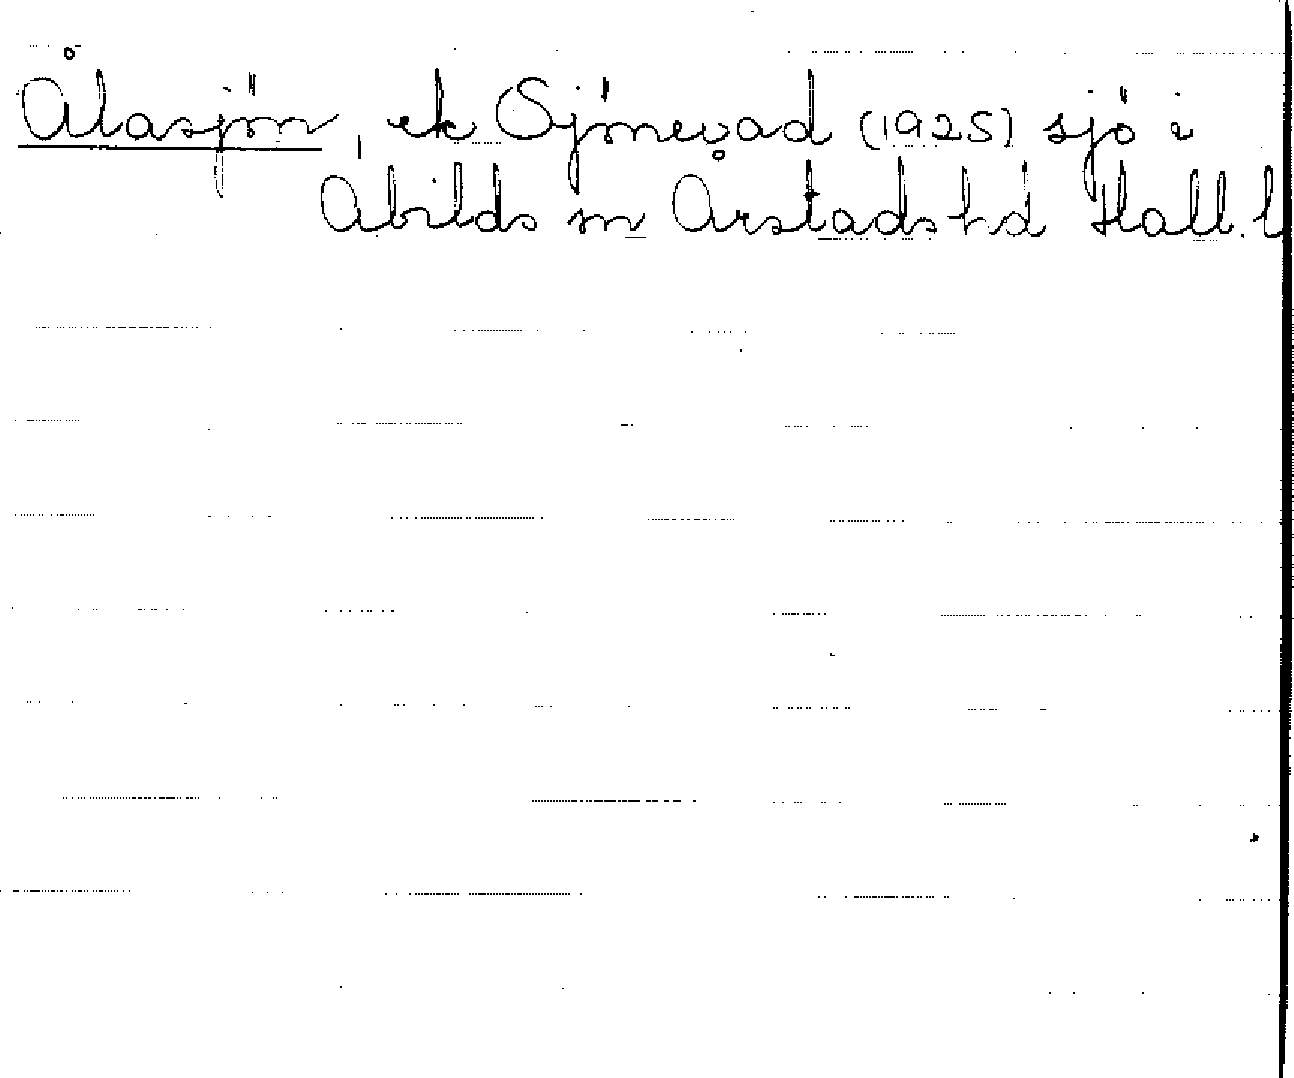 Ålasjön, ek Sjönevad (1925) sjö i
Abilds sn Årstads hd Hall. l